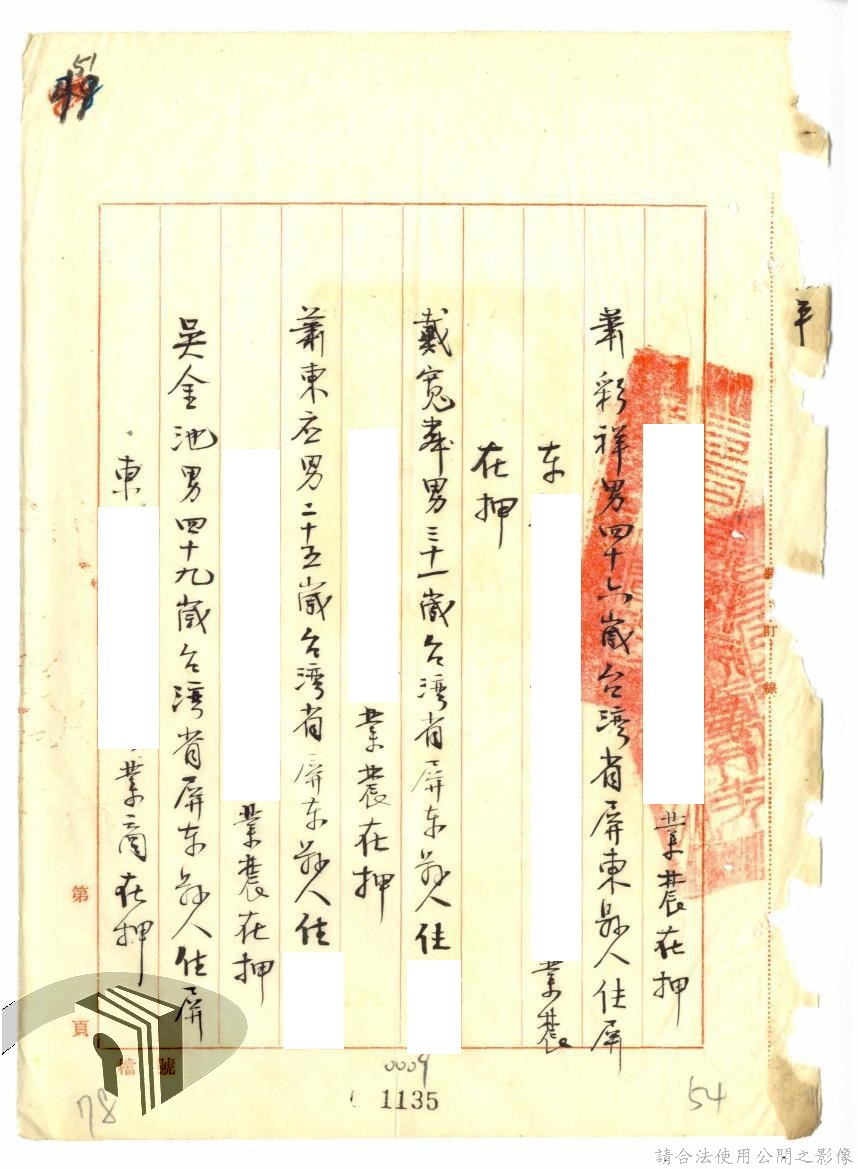 51
年
業農在押
蕭彩祥男四十六歲台湾省屏東縣人住屏
东
業農
在押
戴寬 男三十一歲台湾省屏东縣人住
業農在押
蕭東应男二十五歲台湾省屏东縣人住
業農在押
吴金池男四十九歲台湾省屏东縣人住屏
東
業商在押
裝訂線
第 頁
檔號
0009
1135
78
54
請合法使用公開之影像